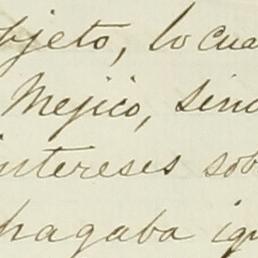 objeto, lo cua
Mejico, sino
intereses sob
pagaba igu